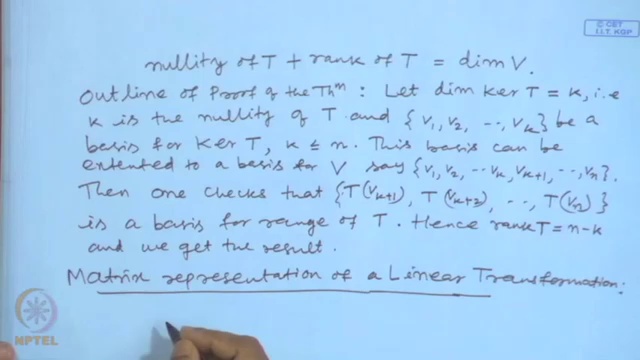 © CET
I.I.T. KGP
nullity of T + rank of T = dim V.
Outline of Proof of the Thm : Let dim ker T = k, i.e
k is the nullity of T and {v1, v2, .., vk} be a
basis for Ker T, k ≤ n. This basis can be
extented to a basis for V say {v1, v2, .. vk, vk+1, .., vn}.
Then one checks that {T(vk+1), T(vk+2), .., T(vn)}
is a basis for range of T. Hence rank T = n-k
and we get the result.
Matrix representation of a Linear Transformation:
NPTEL